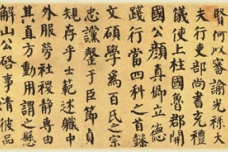 賢何以審諭光祿大
夫行吏部尚書充禮
儀使上柱國魯郡開
國公顏真卿立德
踐行當四科之首懿
文碩學為百氏之宗
忠讜罄於臣節貞
規存乎士範述職中
外服勞社稷靜專由
其直方動用謂之懸
解山公啓事清彼品